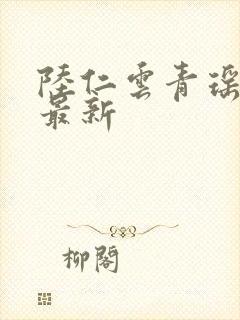 陸仁雲青瑶
最新
柳閣